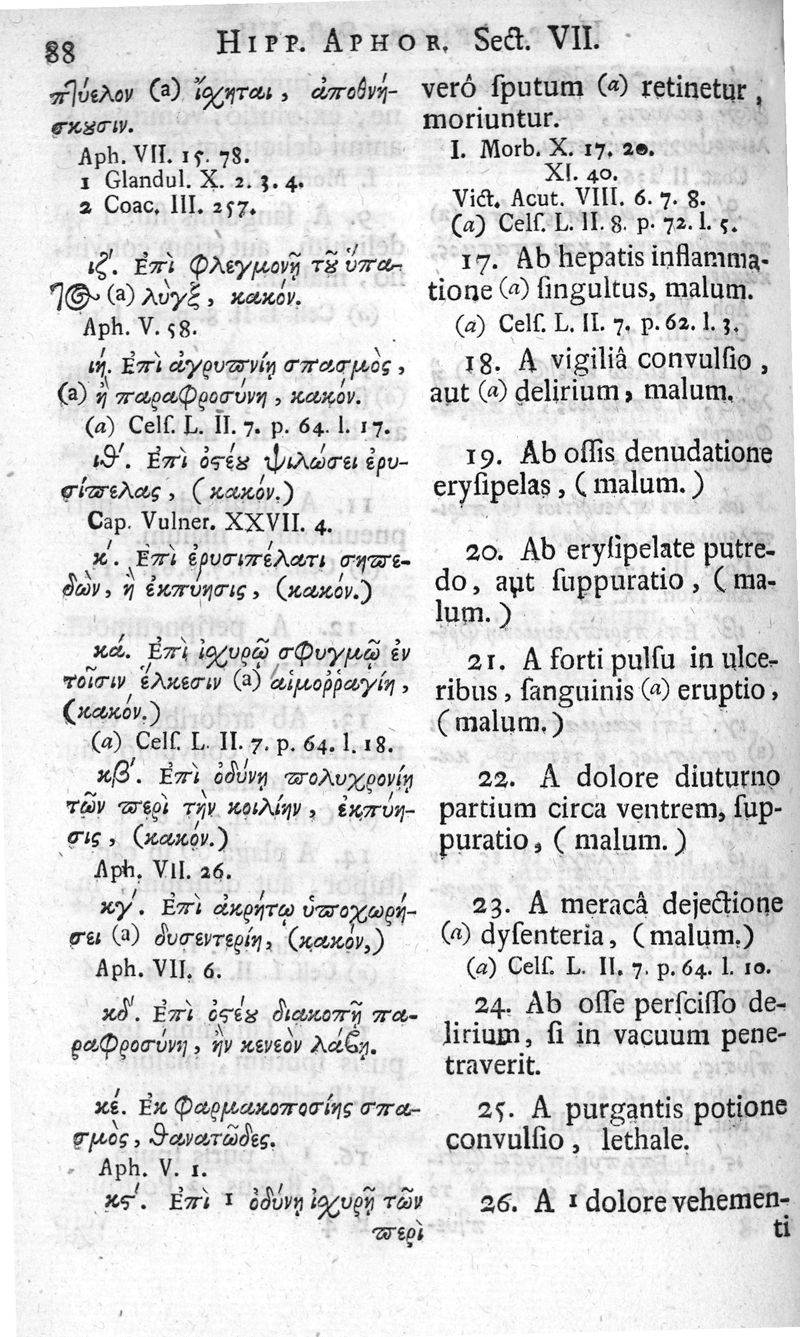 88 HIPP. APHOR. Sect. VII.
πτύελον (a) ἴχηται, ἀποθνή-
σκουσιν.
Aph. VII. 15. 78.
1 Glandul. X. 2. 3. 4.
2 Coac. III. 257.
ιζ΄. Ἐπὶ φλεγμονῇ τοῦ ἥπα-
τος (a) λύγξ, κακόν.
Aph. V. 58.
ιή. Ἐπὶ ἀγρυπνίῃ σπασμὸς,
(a) ἢ παραφροσύνη, κακόν.
(a) Celſ. L. II. 7. p. 64. l. 17.
ιθ΄. Ἐπὶ ὀστέου ψιλώσει ἐρυ-
σίπελας, (κακόν.)
Cap. Vulner. XXVII. 4.
κ΄. Ἐπὶ ἐρυσιπέλατι σηπε-
δὼν, ἢ ἐκπύησις, (κακόν.)
κά. Ἐπὶ ἰχυρῷ σφυγμῷ ἐν
τοῖσιν ἕλκεσιν (a) αἱμοῤῥαγίη,
(κακόν.)
(a) Celſ. L. II. 7. p. 64. l. 18.
κβ΄. Ἐπὶ ὀδύνῃ πολυχρονίῃ
τῶν περὶ τὴν κοιλίην, ἐκπύη-
σις, (κακόν.)
Aph. VII. 26.
κγ΄. Ἐπὶ ἀκρήτῳ ὑποχωρή-
σει (a) δυσεντερίη, (κακόν,)
Aph. VII. 6.
κδ΄. Ἐπὶ ὀστέου διακοπῇ πα-
ραφροσύνη, ἢν κενεὸν λάβῃ.
κέ. Ἐκ φαρμακοποσίης σπα-
σμὸς, θανατῶδες.
Aph. V. 1.
κϛ΄. Ἐπὶ 1 ὀδύνῃ ἰχυρῇ τῶν
περὶ
verô ſputum (a) retinetur,
moriuntur.
I. Morb. X. 17. 20.
XI. 40.
Vict. Acut. VIII. 6. 7. 8.
(a) Celſ. L. II. 8. p. 72. l. 5.
17. Ab hepatis inflamma-
tione (a) ſingultus, malum.
(a) Celſ. L. II. 7. p. 62. l. 3.
18. A vigiliâ convulſio,
aut (a) delirium, malum.
19. Ab oſſis denudatione
eryſipelas, (malum.)
20. Ab eryſipelate putre-
do, aut ſuppuratio, (ma-
lum.)
21. A forti pulſu in ulce-
ribus, ſanguinis (a) eruptio,
(malum.)
22. A dolore diuturno
partium circa ventrem, ſup-
puratio, (malum.)
23. A meracâ dejectione
(a) dyſenteria, (malum.)
(a) Celſ. L. II. 7. p. 64. l. 10.
24. Ab oſſe perſciſſo de-
lirium, ſi in vacuum pene-
traverit.
25. A purgantis potione
convulſio, lethale.
26. A 1 dolore vehemen-
ti